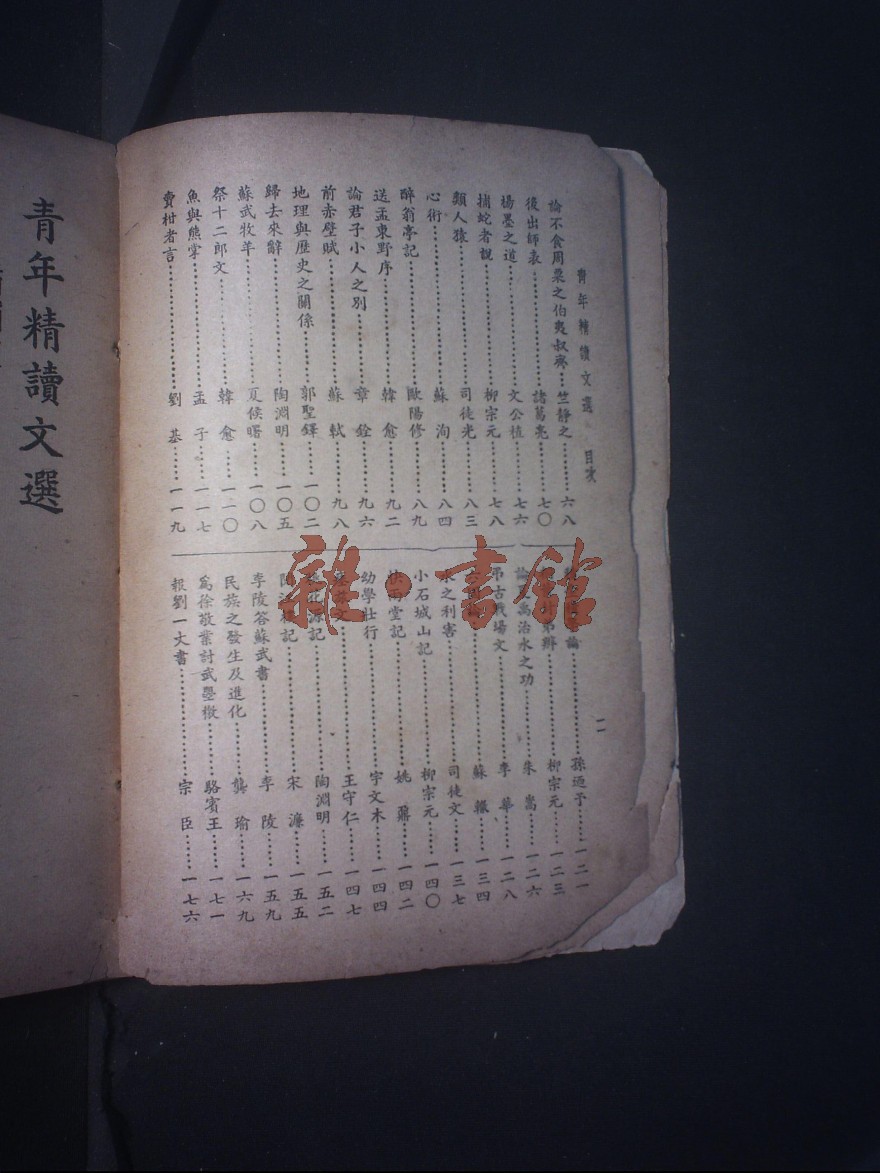 青年精讀文選 目次
二
論不食周粟之伯夷叔齊……竺靜之……六八
後出師表……諸葛亮……七〇
楊墨之道……文公植……七六
捕蛇者說……柳宗元……七八
類人猿……司徒光……八三
心術……蘇洵……八四
醉翁亭記……歐陽修……八九
送孟東野序……韓愈……九二
論君子小人之別……章銓……九六
前赤壁賦……蘇軾……九八
地理與歷史之關係……郭聖鐸……一〇二
歸去來辭……陶淵明……一〇五
蘇武牧羊……夏侯曙……一〇八
祭十二郎文……韓愈……一一〇
魚與熊掌……孟子……一一七
賣柑者言……劉基……一一九
論……孫迺予……一二一
辨……柳宗元……一二三
禹治水之功……朱嵩……一二六
弔古戰場文……李華……一二八
蘇轍……一三四
之利害……司徒文……一三七
小石城山記……柳宗元……一四〇
快雨堂記……姚鼐……一四二
幼學壯行……宇文木……一四四
文……王守仁……一四七
桃花源記……陶淵明……一五二
記……宋濂……一五五
李陵答蘇武書……李陵……一五九
民族之發生及進化……龔瑜……一六九
為徐敬業討武曌檄……駱賓王……一七一
報劉一丈書……宗臣……一七六
青年精讀文選
雜·書館